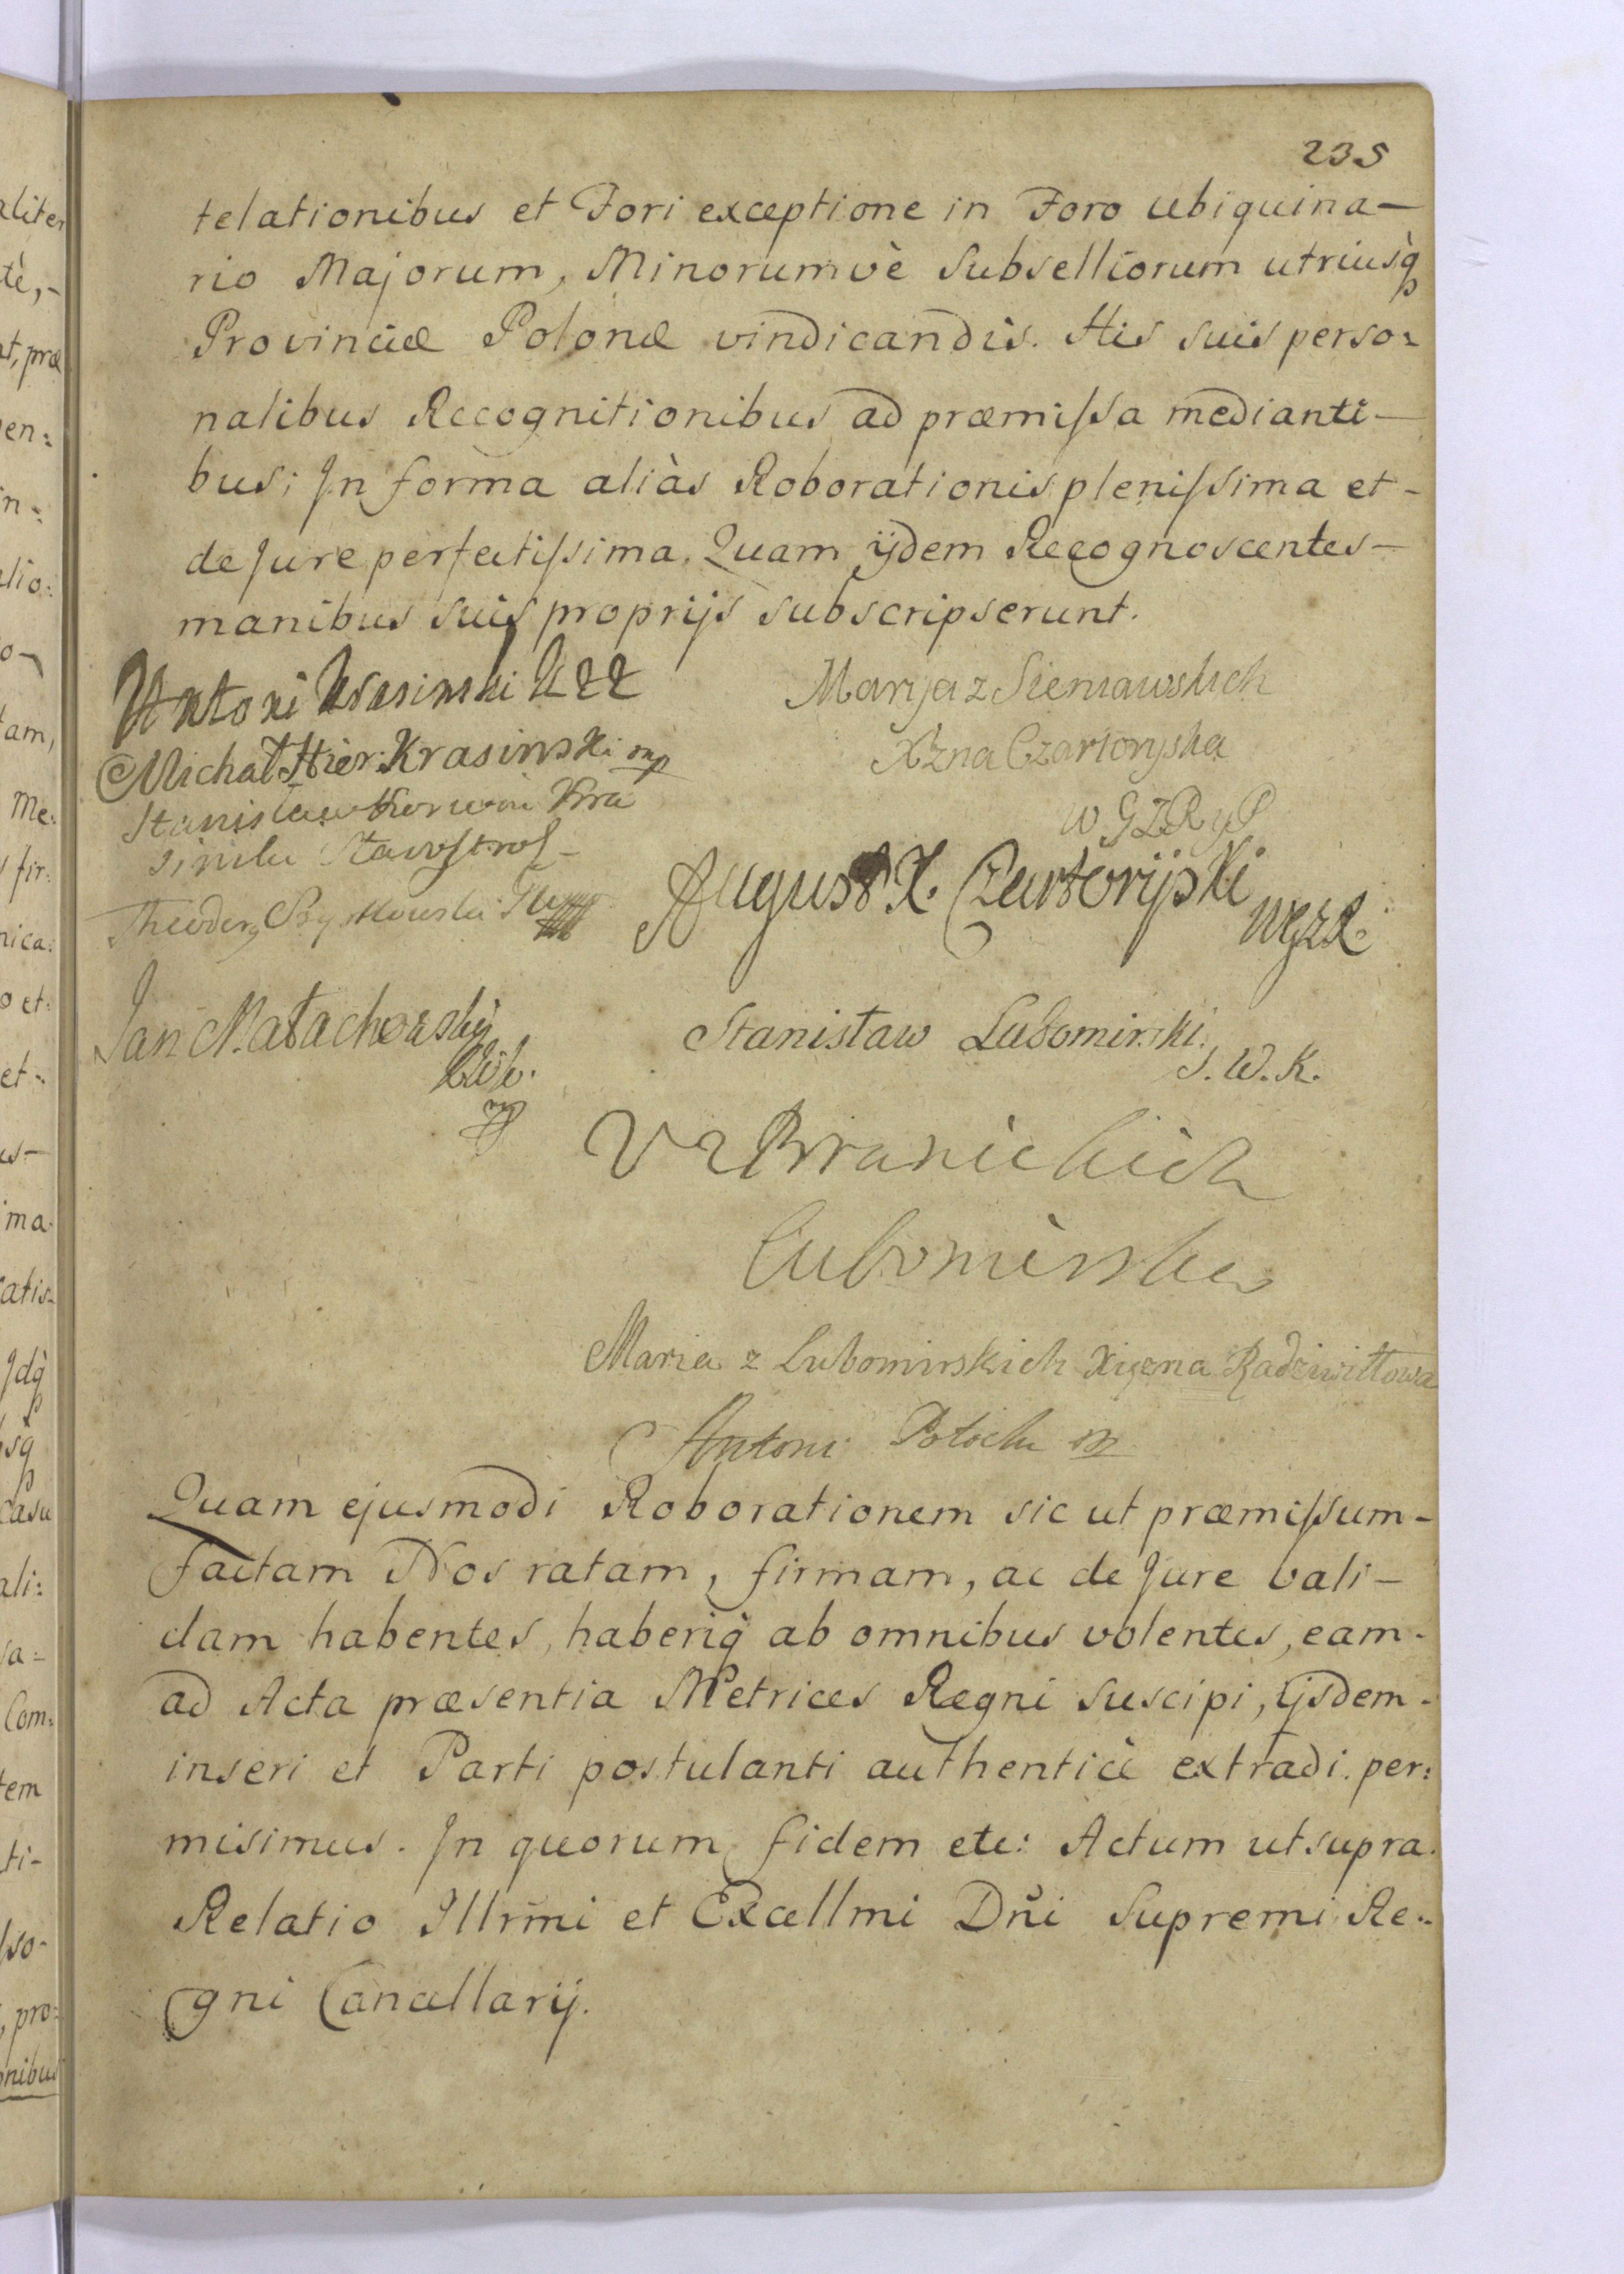 235
telationibus et Fori exceptione in Foro ubiquina-
rio Majorum, Minorumvè Subselliorum utriusq̀
Provinciæ Polonæ vindicandis. His suis perso:
nalibus Recognitionibus ad præmissa medianti-
bus; In forma aliàs Roborationis plenissima et-
de Jure perfectissima. Quam ijdem Recognoscentes-
manibus suis proprijs subscripserunt.
Antoni Krasinski
Michał Hier: Krasinski mp
Stanisław Korwin Kra
sinski
Theodor
Jan Małachowski
mp
Maryja z Sieniawskich
Xżna Czartoryska
W G Z R y P
August X. Czartoryski
WGZR.
Stanisław Lubomirski.
S. W. K.
z Branickich
Lubomirska
Maria z Lubomirskich Xiężna Radziwiłłowa
Antoni Potocki
Quam ejusmodi Roborationem sic ut præmissum-
factam Nos ratam, firmam, ac de Jure vali-
dam habentes, haberiq̀ ab omnibus volentes, eam-
ad Acta præsentia Metrices Regni suscipi, ijsdem-
inseri et Parti postulanti authenticè extradi per:
misimus. In quorum fidem etc: Actum ut supra.
Relatio Illrmi et Excellmi Dñi Supremi Re:
gni Cancellarij.
aliter
tè,-
t, præ
en:
in:
o-
tam,
Me:
fir:
nica:
o et:
et-
us-
ima
catis-
Jdq̀
sq̀
casu
ali:
a:
Com:
tem
ti-
sso-
, pro:
onibus